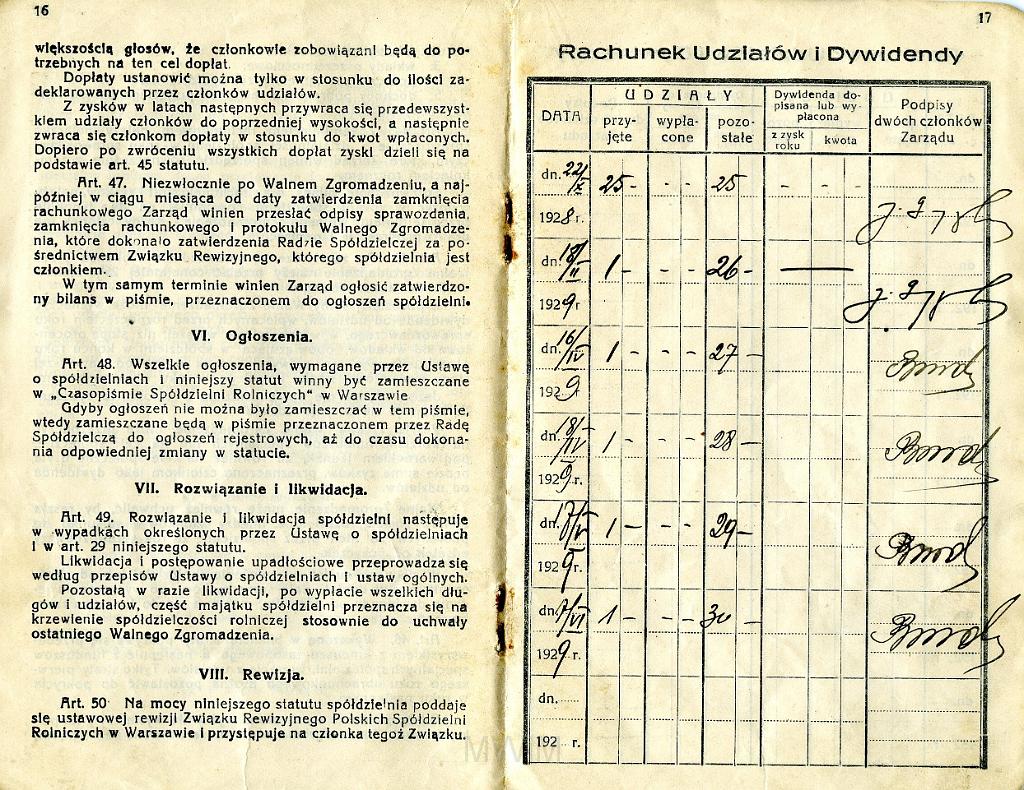 16
większością głosów, że członkowie zobowiązani będą do po-
trzebnych na ten cel dopłat.
Dopłaty ustanowić można tylko w stosunku do ilości za-
deklarowanych przez członków udziałów.
Z zysków w latach następnych przywraca się przedewszyst-
kiem udziały członków do poprzedniej wysokości, a następnie
zwraca się członkom dopłaty w stosunku do kwot wpłaconych.
Dopiero po zwróceniu wszystkich dopłat zyski dzieli się na
podstawie art. 45 statutu.
Art. 47. Niezwłocznie po Walnem Zgromadzeniu, a naj-
później w ciągu miesiąca od daty zatwierdzenia zamknięcia
rachunkowego Zarząd winien przesłać odpisy sprawozdania,
zamknięcia rachunkowego i protokułu Walnego Zgromadze-
nia, które dokonało zatwierdzenia Radzie Spółdzielczej za po-
średnictwem Związku Rewizyjnego, którego spółdzielnia jest
członkiem.
W tym samym terminie winien Zarząd ogłosić zatwierdzo-
ny bilans w piśmie, przeznaczonem do ogłoszeń spółdzielni.
VI. Ogłoszenia.
Art. 48. Wszelkie ogłoszenia, wymagane przez Ustawę
o spółdzielniach i niniejszy statut winny być zamieszczane
w „Czasopiśmie Spółdzielni Rolniczych" w Warszawie
Gdyby ogłoszeń nie można było zamieszczać w tem piśmie,
wtedy zamieszczane będą w piśmie przeznaczonem przez Radę
Spółdzielczą do ogłoszeń rejestrowych, aż do czasu dokona-
nia odpowiedniej zmiany w statucie.
VII. Rozwiązanie i likwidacja.
Art. 49. Rozwiązanie i likwidacja spółdzielni następuje
w wypadkach określonych przez Ustawę o spółdzielniach
i w art. 29 niniejszego statutu.
Likwidacja i postępowanie upadłościowe przeprowadza się
według przepisów Ustawy o spółdzielniach i ustaw ogólnych.
Pozostałą w razie likwidacji, po wypłacie wszelkich dłu-
gów i udziałów, część majątku spółdzielni przeznacza się na
krzewienie spółdzielczości rolniczej stosownie do uchwały
ostatniego Walnego Zgromadzenia.
VIII. Rewizja.
Art. 50 Na mocy niniejszego statutu spółdzielnia poddaje
się ustawowej rewizji Związku Rewizyjnego Polskich Spółdzielni
Rolniczych w Warszawie i przystępuje na członka tegoż Związku.
17
Rachunek Udziałów i Dywidendy
DATA
UDZIAŁY
przy-
jęte
wypła-
cone
pozo-
stałe
Dywidenda do-
pisana lub wy-
płacona
z zysk
roku
kwota
Podpisy
dwóch członków
Zarządu
dn. 22/X 25 - - - 25 - - -
1928 r.
dn. 18/II 1 - - - 26 -
1929 r
dn. 16/IV 1 - - - 27 -
1929
dn. 18/IV 1 - - - 28 -
1929 r.
dn. 17/V 1 - - - 29 -
1929 r.
dn. 7/VI 1 - - - 30 -
1929 r.
dn.
192 r.
MWM